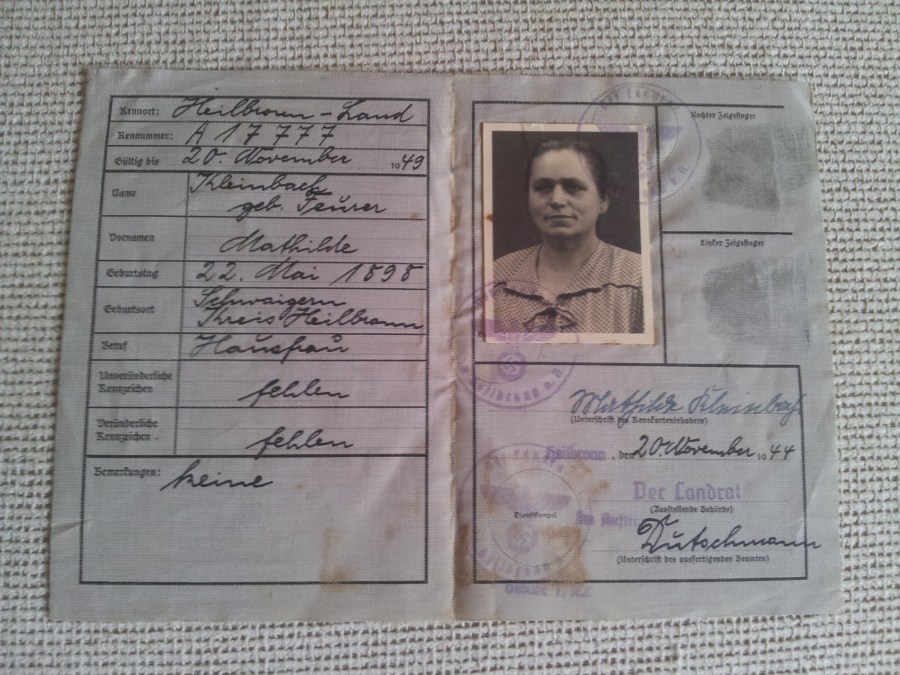 Kennort: Heilbronn-Land
Kennummer: A 17777
Gültig bis 20. November 1949
Name Kleinbach
geb. Feurer
Vornamen Mathilde
Geburtstag 22. Mai 1898
Geburtsort Schwaigern
Kreis Heilbronn
Beruf Hausfrau
Unveränderliche
Kennzeichen fehlen
Veränderliche
Kennzeichen fehlen
Bemerkungen: keine
Der Landrat
Rechter Zeigefinger
Linker Zeigefinger
Heilbronn a. N.
Mathilde Kleinbach
(Unterschrift des Kennkarteninhabers)
Heilbronn, den 20. November 1944
Der Landrat
(Ausstellende Behörde)
Im Auftrag
Dienststempel
Dutschmann
(Unterschrift des ausfertigenden Beamten)
Der Landrat
Heilbronn